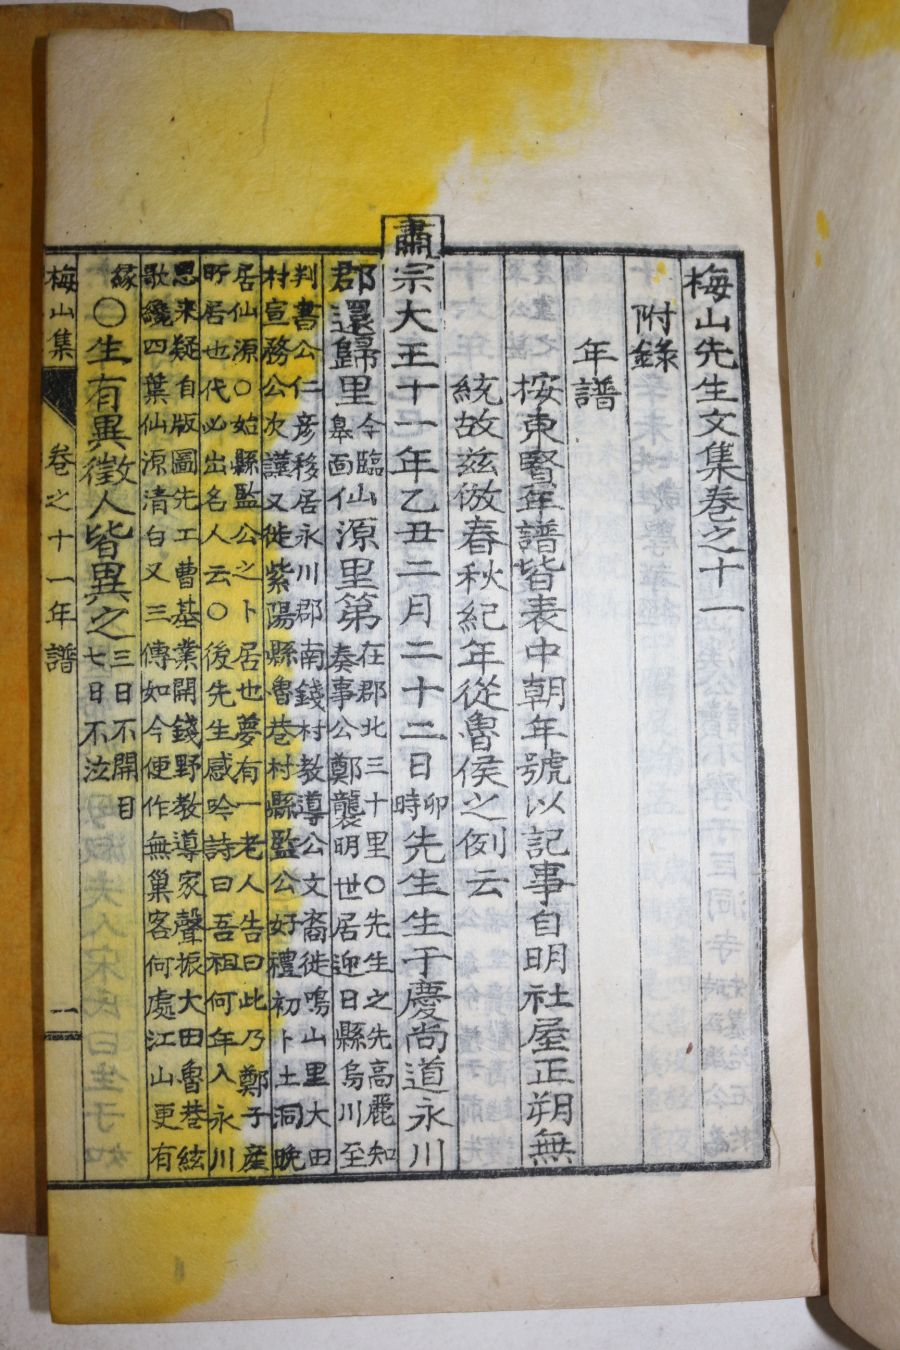 梅山先生文集卷之十一
附錄
年譜
按東賢年譜皆表中朝年號以記事自明社屋正朔無
統故玆倣春秋紀年從魯侯之例云
肅宗大王十一年乙丑二月二十二日卯時先生生于慶尙道永川
郡還歸里今臨皐面仙源里第在郡北三十里○先生之先高麗知奏事公鄭襲明世居迎日縣烏川至
判書公仁彦移居永川郡南錢村教導公文裔徙鳴山里大田
村宣務公次謹又徙紫陽縣魯巷村縣監公好禮初卜土洞晩
居仙源○始縣監公之卜居也夢有一老人告曰此乃鄭子産
所居也代必出名人云○後先生感吟詩曰吾祖何年入永川
思來疑自版圖先工曹基業開錢野教導家聲振大田魯巷絃
歌纔四葉仙源淸白又三傳如今便作無巢客何處江山更有
緣○生有異徵人皆異之三日不開目七日不泣
梅山集 卷之十一年譜 一